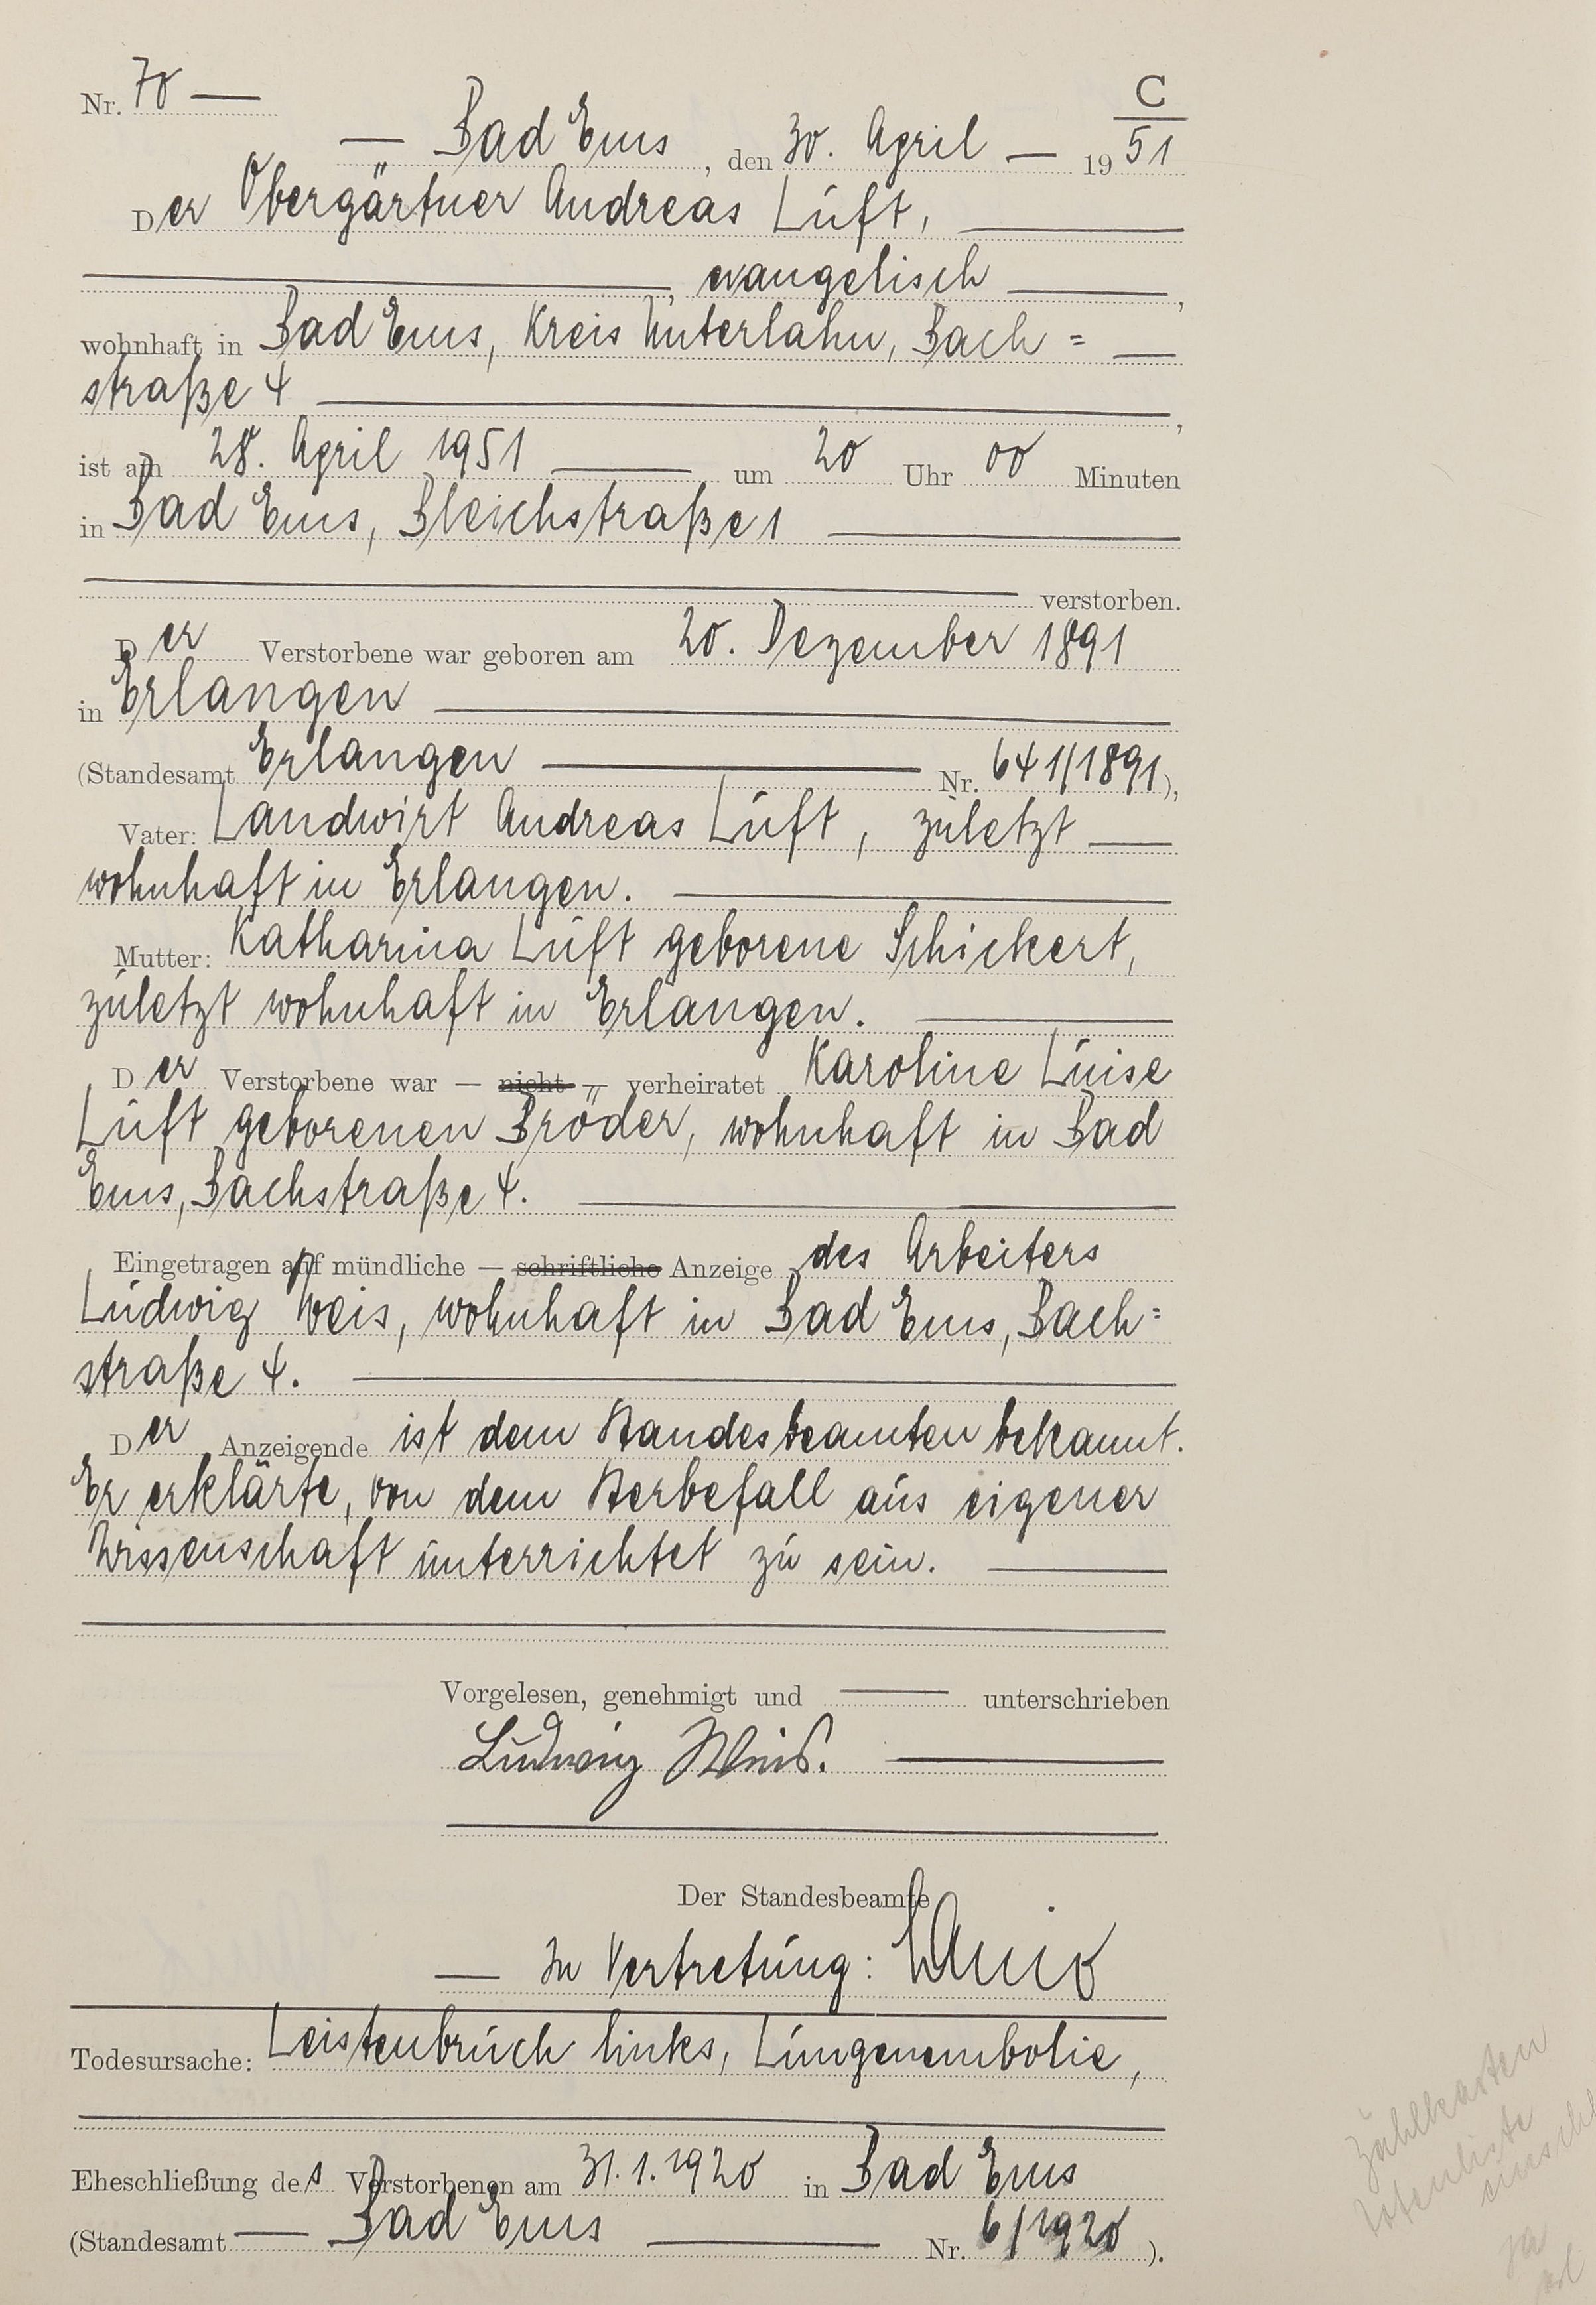 Nr. 70 —
C
— Bad Ems, den 30. April — 1951
Der Obergärtner Andreas Luft,
, evangelisch ,
wohnhaft in Bad Ems, Kreis Unterlahn, Bach =
straße 4 ,
ist am 28. April 1951 um 20 Uhr 00 Minuten
in Bad Ems, Bleichstraße 1
verstorben.
Der Verstorbene war geboren am 20. Dezember 1891
in Erlangen
(Standesamt Erlangen Nr. 641/1891),
Vater: Landwirt Andreas Luft, zuletzt
wohnhaft in Erlangen.
Mutter: Katharina Luft geborene Schickert,
zuletzt wohnhaft in Erlangen.
Der Verstorbene war — nicht — verheiratet Karoline Luise
Luft geborenen Bröder, wohnhaft in Bad
Ems, Bachstraße 4.
Eingetragen auf mündliche — schriftliche Anzeige des Arbeiters
Ludwig Weis, wohnhaft in Bad Ems, Bach=
straße 4.
Der Anzeigende ist dem Standesbeamten bekannt.
Er erklärte, von dem Sterbefall aus eigener
Wissenschaft unterrichtet zu sein.
Vorgelesen, genehmigt und — unterschrieben
Ludwig Weis.
Der Standesbeamte
— In Vertretung:
Todesursache: Leistenbruch links, Lungenembolie,
Eheschließung des Verstorbenen am 31.1.1920 in Bad Ems
(Standesamt — Bad Ems — Nr. 6/1920 ).
Zählkarten
Totenliste
ja